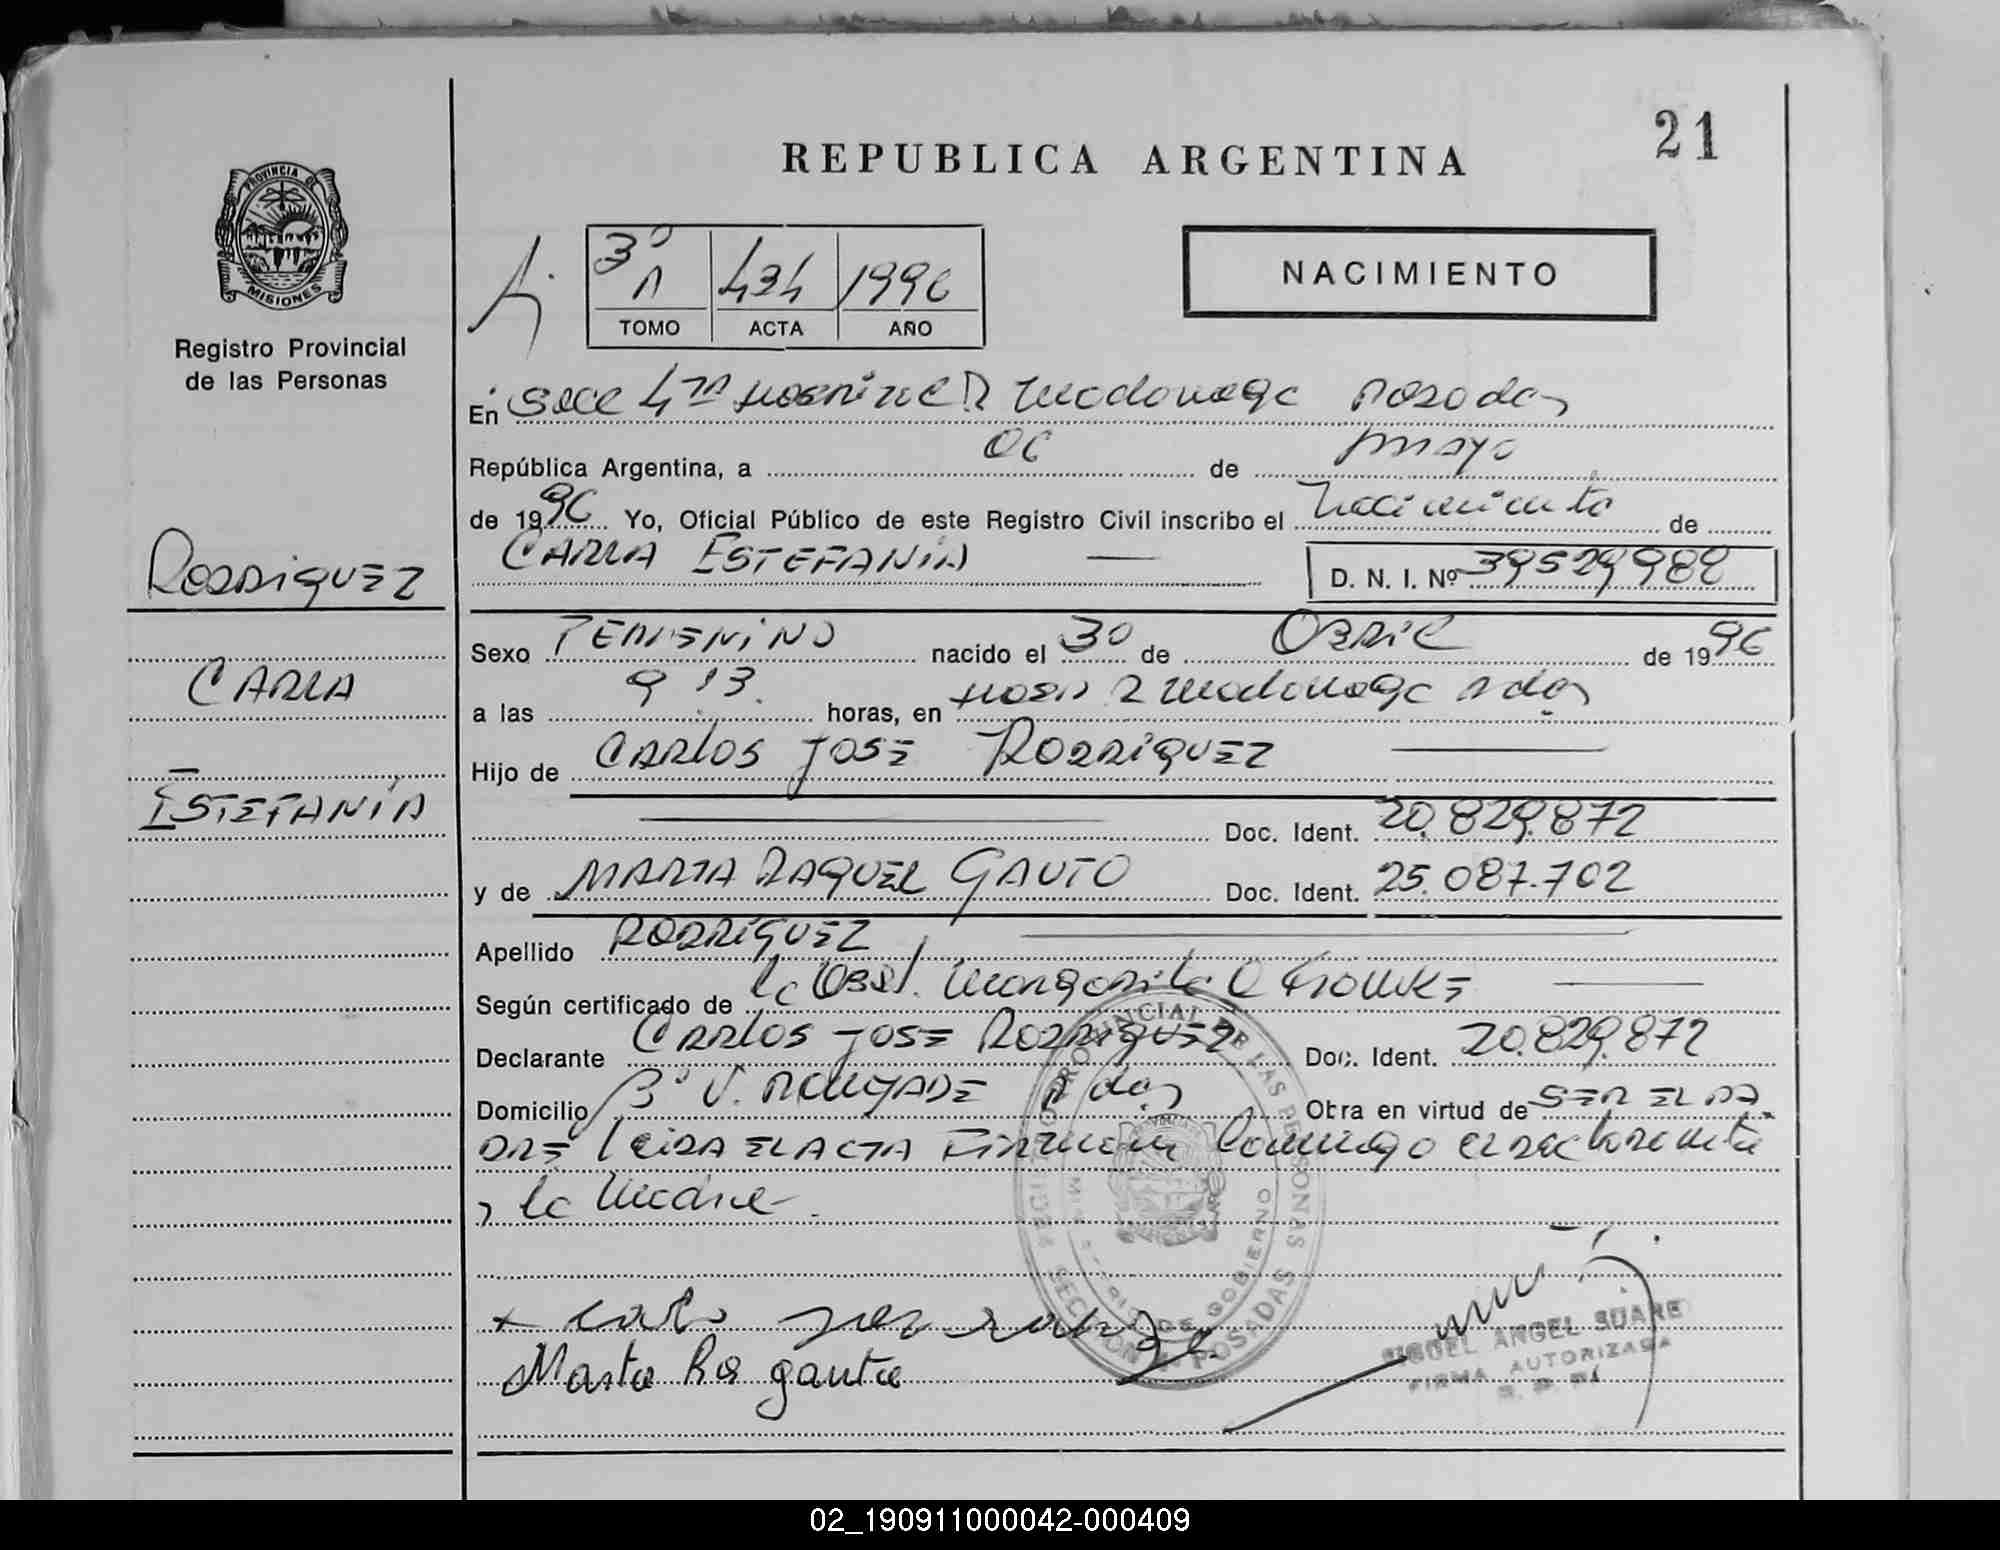 21
REPUBLICA ARGENTINA
PROVINCIA DE
MISIONES
Registro Provincial
de las Personas
3º
A 434 1996
TOMO ACTA AÑO
NACIMIENTO
En Secc 4ta Hospital R Madariaga Posadas
República Argentina, a 06 de mayo
de 1996 Yo, Oficial Público de este Registro Civil inscribo el nacimiento de
CARLA ESTEFANIA D. N. I. Nº 39529988
RODRIGUEZ
CARLA
ESTEFANIA
Sexo FEMENINO nacido el 30 de ABRIL de 1996
a las 9 13 horas, en Hosp R Madariaga Pdas
Hijo de CARLOS JOSE RODRIGUEZ
Doc. Ident. 20.829.872
y de MARTA RAQUEL GAUTO Doc. Ident. 25.087.702
Apellido RODRIGUEZ
Según certificado de la Obst. Margarita
Declarante CARLOS JOSE RODRIGUEZ Doc. Ident. 20.829.872
Domicilio Bº Pdas Obra en virtud de SER EL PA
DRE LEIDA EL ACTA FIRMAN Conmigo el declarante
y la Madre
REGISTRO PROVINCIAL DE LAS PERSONAS
MINISTERIO DE GOBIERNO
SECCION POSADAS
Marta Ra gauto
MIGUEL ANGEL SUARE
FIRMA AUTORIZADA
02_190911000042-000409